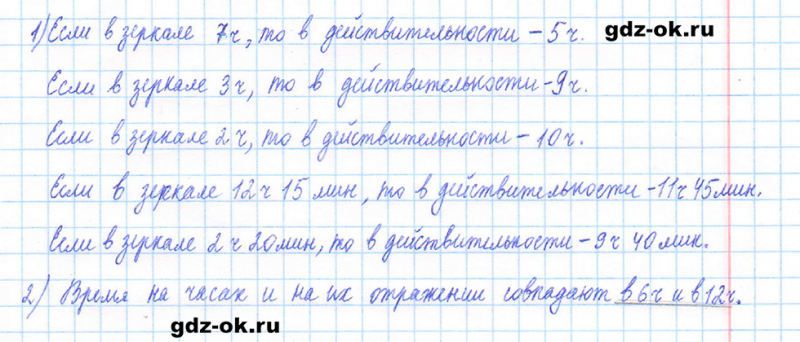 1) Если в зеркале 7ч, то в действительности – 5ч. gdz-ok.ru
Если в зеркале 3ч, то в действительности – 9ч.
Если в зеркале 2ч, то в действительности – 10ч.
Если в зеркале 12ч 15мин, то в действительности – 11ч 45мин.
Если в зеркале 2ч 20мин, то в действительности – 9ч 40мин.
2) Время на часах и на их отражении совпадают в 6ч и в 12ч.
gdz-ok.ru